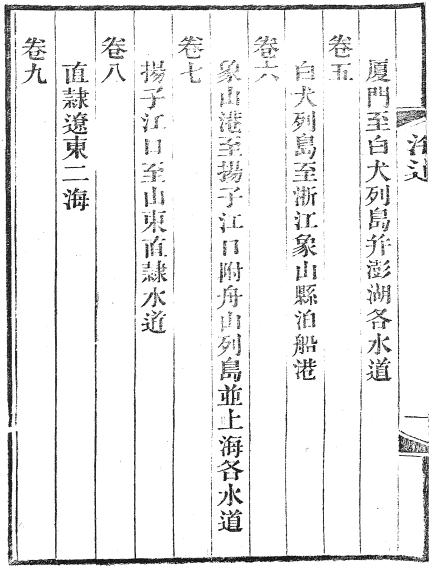 海道
廈門至白犬列島幷澎湖各水道
卷五
白犬列島至浙江象山縣泊船港
卷六
象山港至揚子江口附舟山列島並上海各水道
卷七
揚子江口至山東直隸水道
卷八
直隸遼東二海
卷九